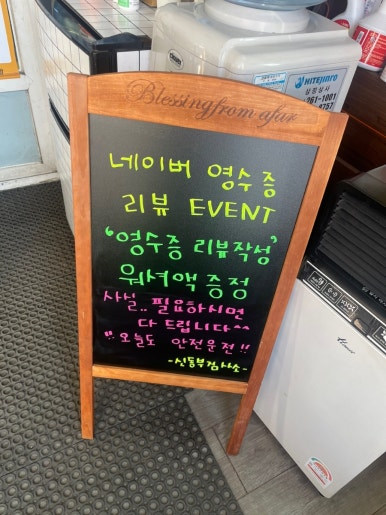 Blessing from afar
네이버 영수증
리뷰 EVENT
'영수증 리뷰작성'
워셔액 증정
사실.. 필요하시면
다 드립니다^^
!! 오늘도 안전운전!!
-신동부검사소-
HITEJINRO